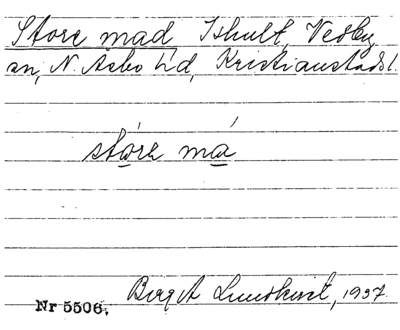 Store mad, Ishult, Vedby
sn, N. Åsbo hd, Kristianstads l.
stóre má
Birgit Lundkvist, 1937.
Nr 5506.